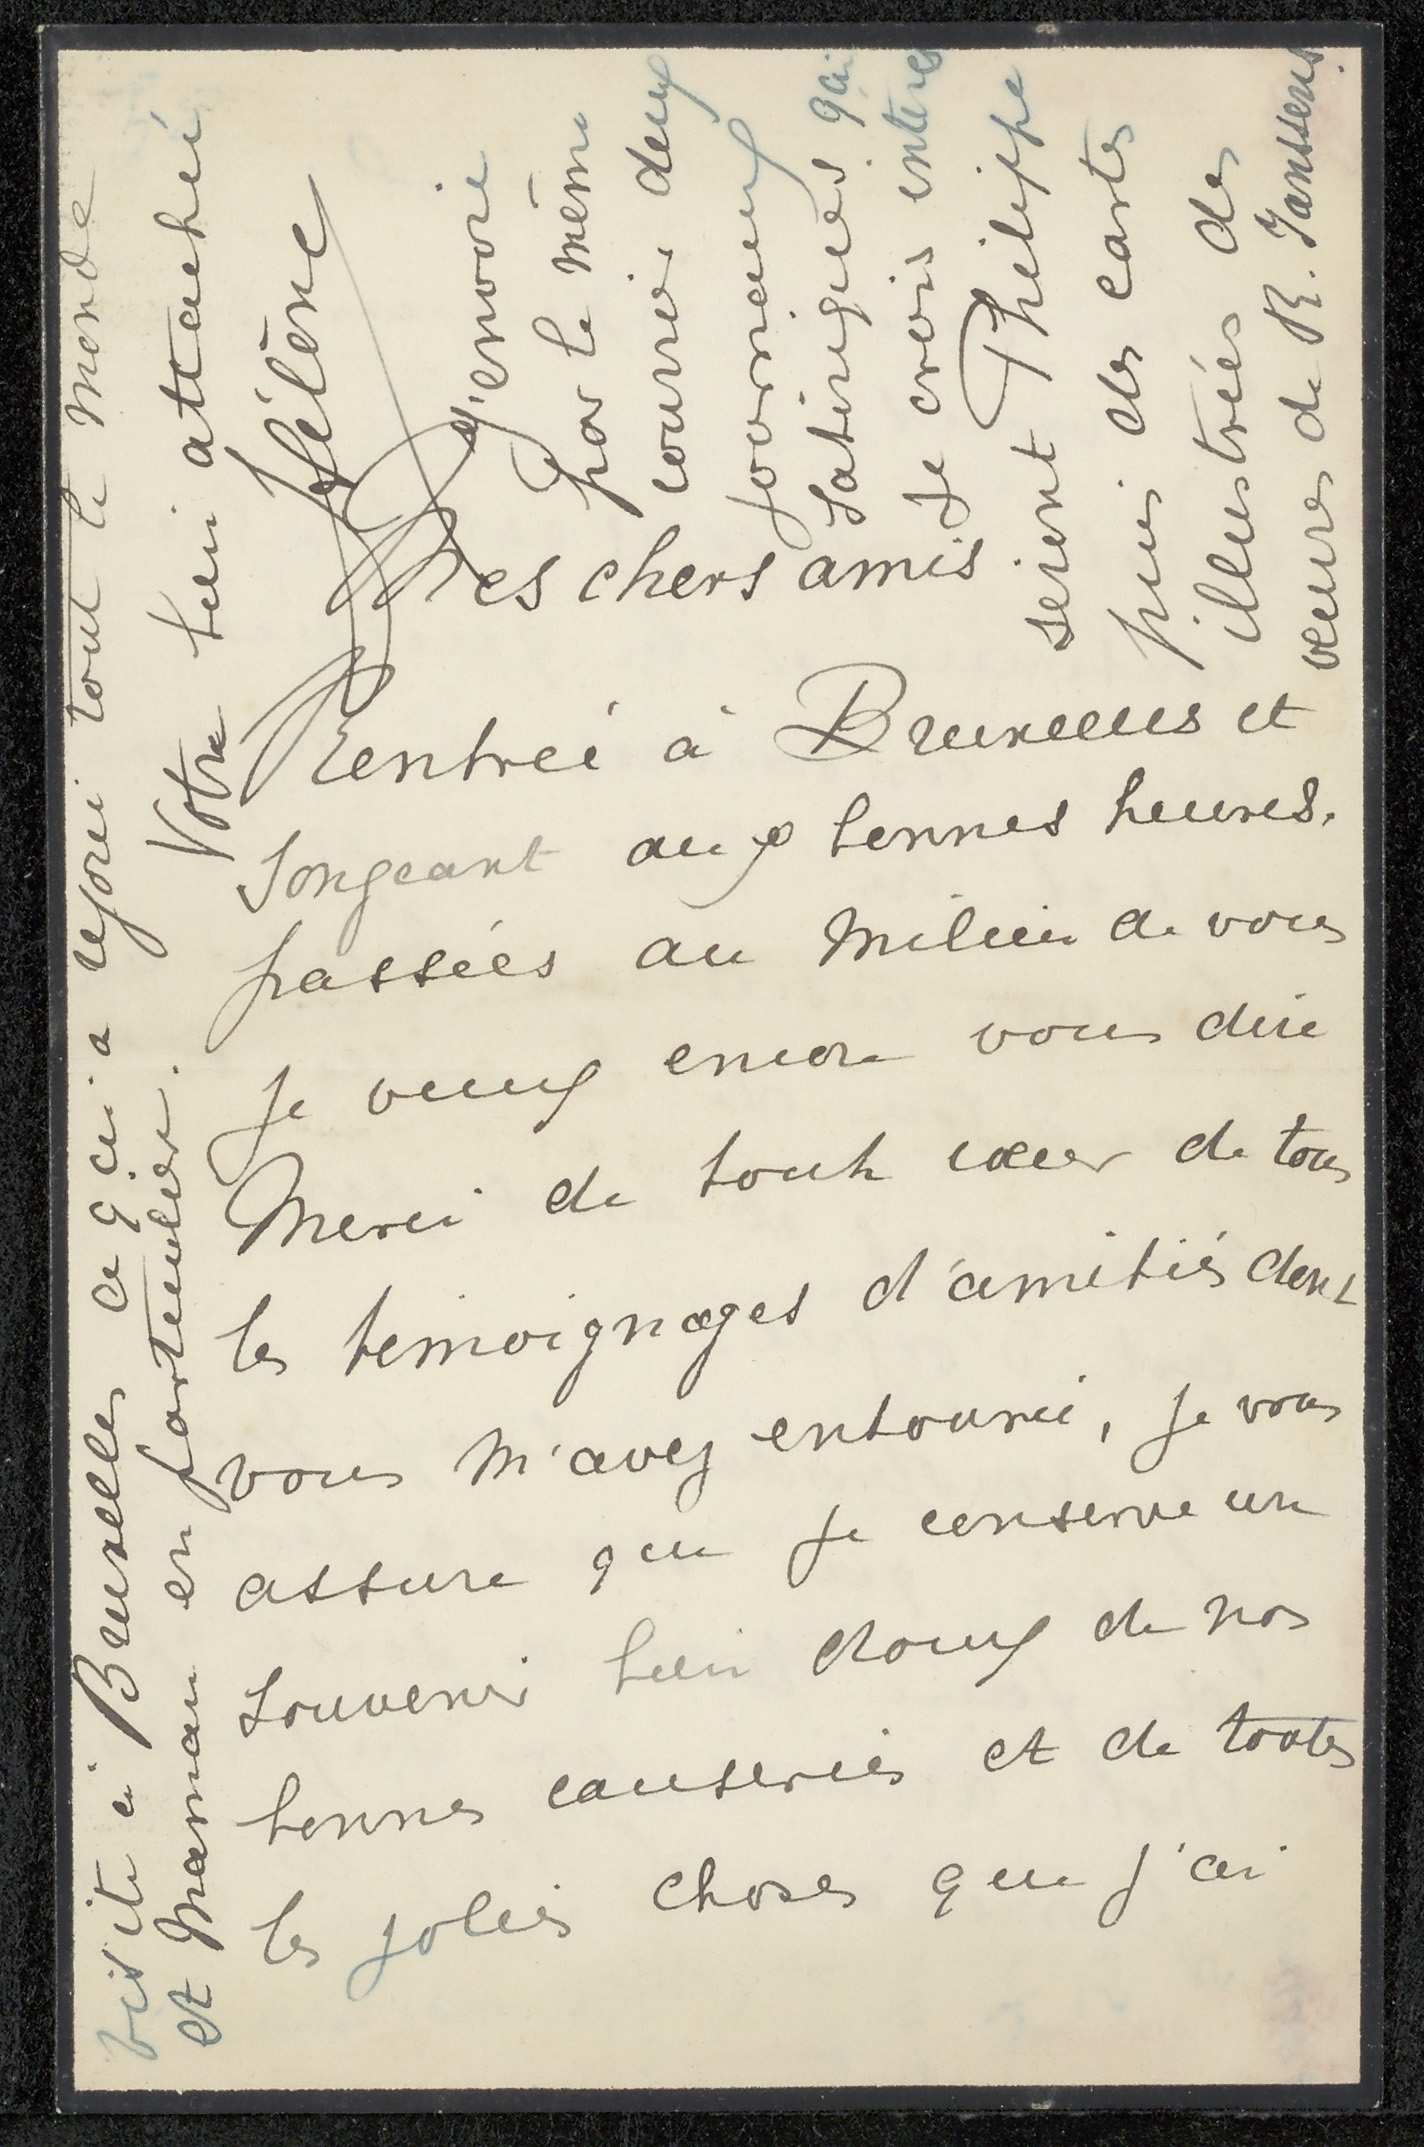 Mes chers amis
Rentrée à Bruxelles et
songeant aux bonnes heures
passées au milieu de vous
je veux encore vous dire
Merci de tout cœur de tous
les temoignages d'amitiés dont
vous m'avez entourée, je vous
assure que je conserve un
souvenir bien doux de nos
bonnes causeries et de toutes
les jolies choses que j'ai
visite à Bruxelles ce qui a rejoui tout le monde
et Maman en particulier.
Votre bien attachée
Hélène
J'envoie
par le même
courrier deux
journaux
satiriques qui
je crois intéres
seront Philippe
puis des cartes
illustrées des
œuvres de R. Janssens.